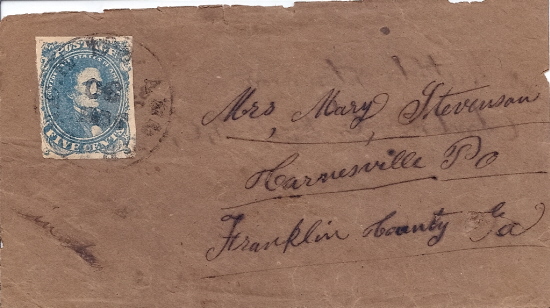 POSTAGE
CONFEDERATE STATES OF AMERICA
FIVE CENTS
Mrs, Mary, Stevenson
Harnesville Po
Franklin County Ga